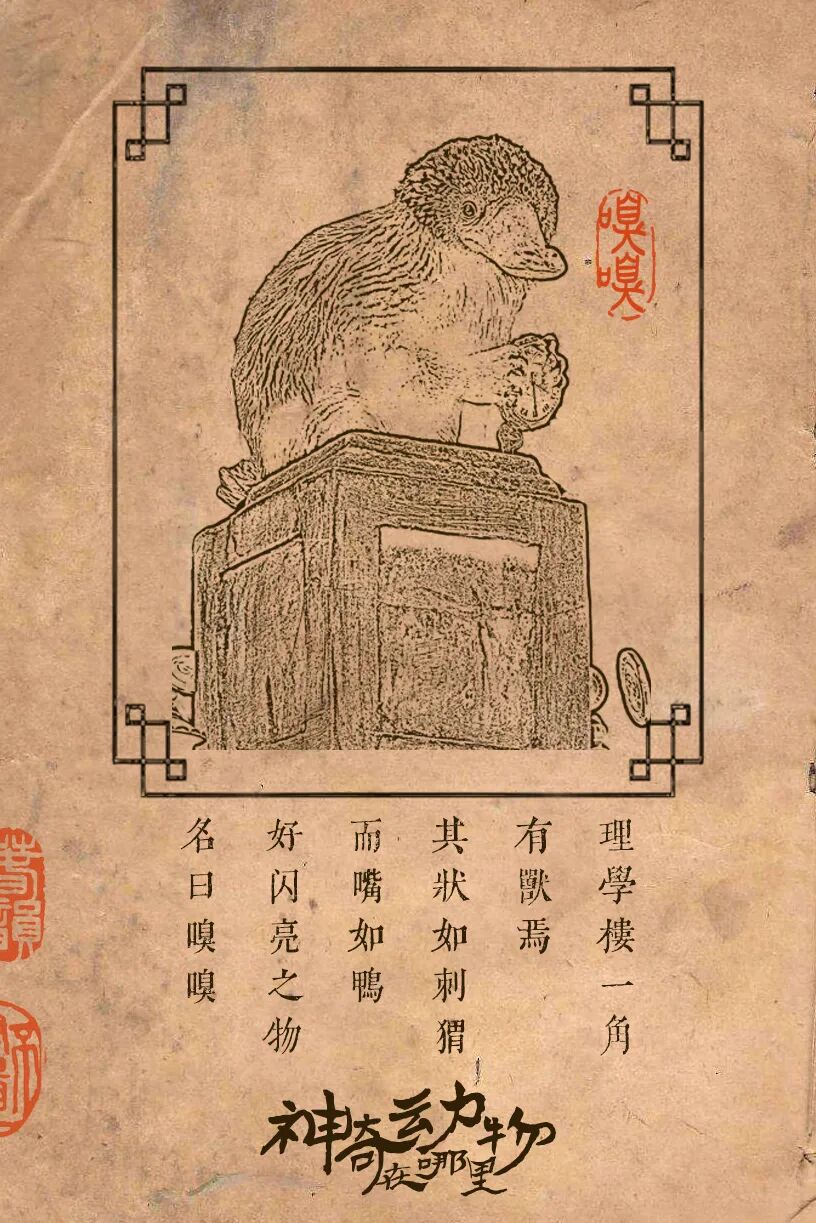 嗅嗅
理學樓一角
有獸焉
其狀如刺猬
而嘴如鴨
好闪亮之物
名曰嗅嗅
神奇动物
在哪里